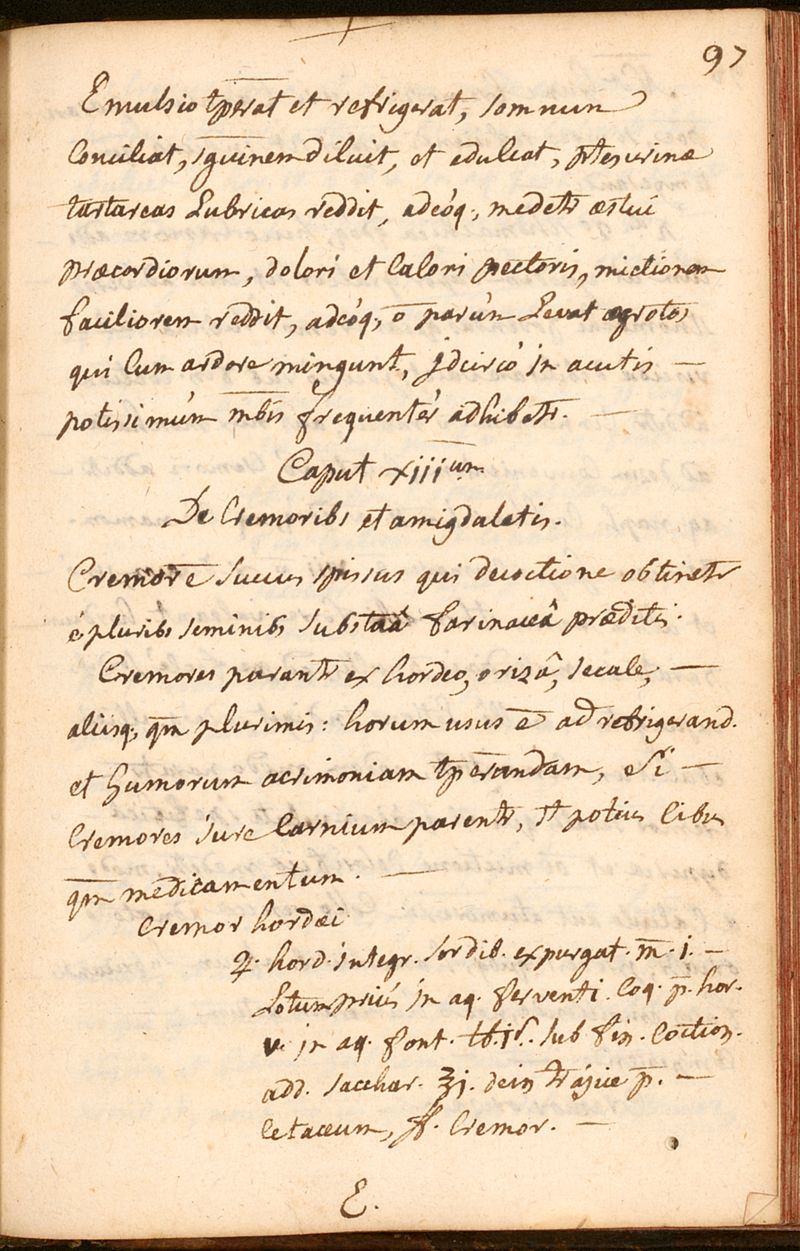 97
Emulsio tp̄erat et refrigerat, somnum
Conciliat, sḡuinem diluit, et edulcat, p̄tes urinæ
tartareas Lubricas reddit, adeóq; medetr æstui
præcordiorum, dolori et Calori pectoris, mictionem
faciliorem reddit, adeóq; ō parùm Levat ægrotos
qui Cum ardore mingunt, jdcircò in acutis —
potissimùm mb̄is frequentèr adhibetr. —
Caput XIIIum
De Cremoribs et amigdalatis.
Cremor ē Succus spissus qui decoctione obtinetr
è pluribs seminibs substāâ farinaceâ præditis.
Cremores parantr ex hordeo, orizâ, secale, —
aliisq; qm̄ plurimis: horum usus ē ad refrigerand.
et humorum acrimoniam tp̄erandam, Si —
Cremores jure Carnium parentr, st potius Cibus
qm̄ medicamentum. —
Cremor hordei
♃. hord. integr. sordib. expurgat. m̄. j. —
Lotum priús in aq. ferventi. Coq. p̄. hor.
v. in aq. font. lb.jß. sub fin. Coction.
add. sacchar. ʒj. dein trajice p̄. —
Cetaceum, ft. Cremor. —
E.